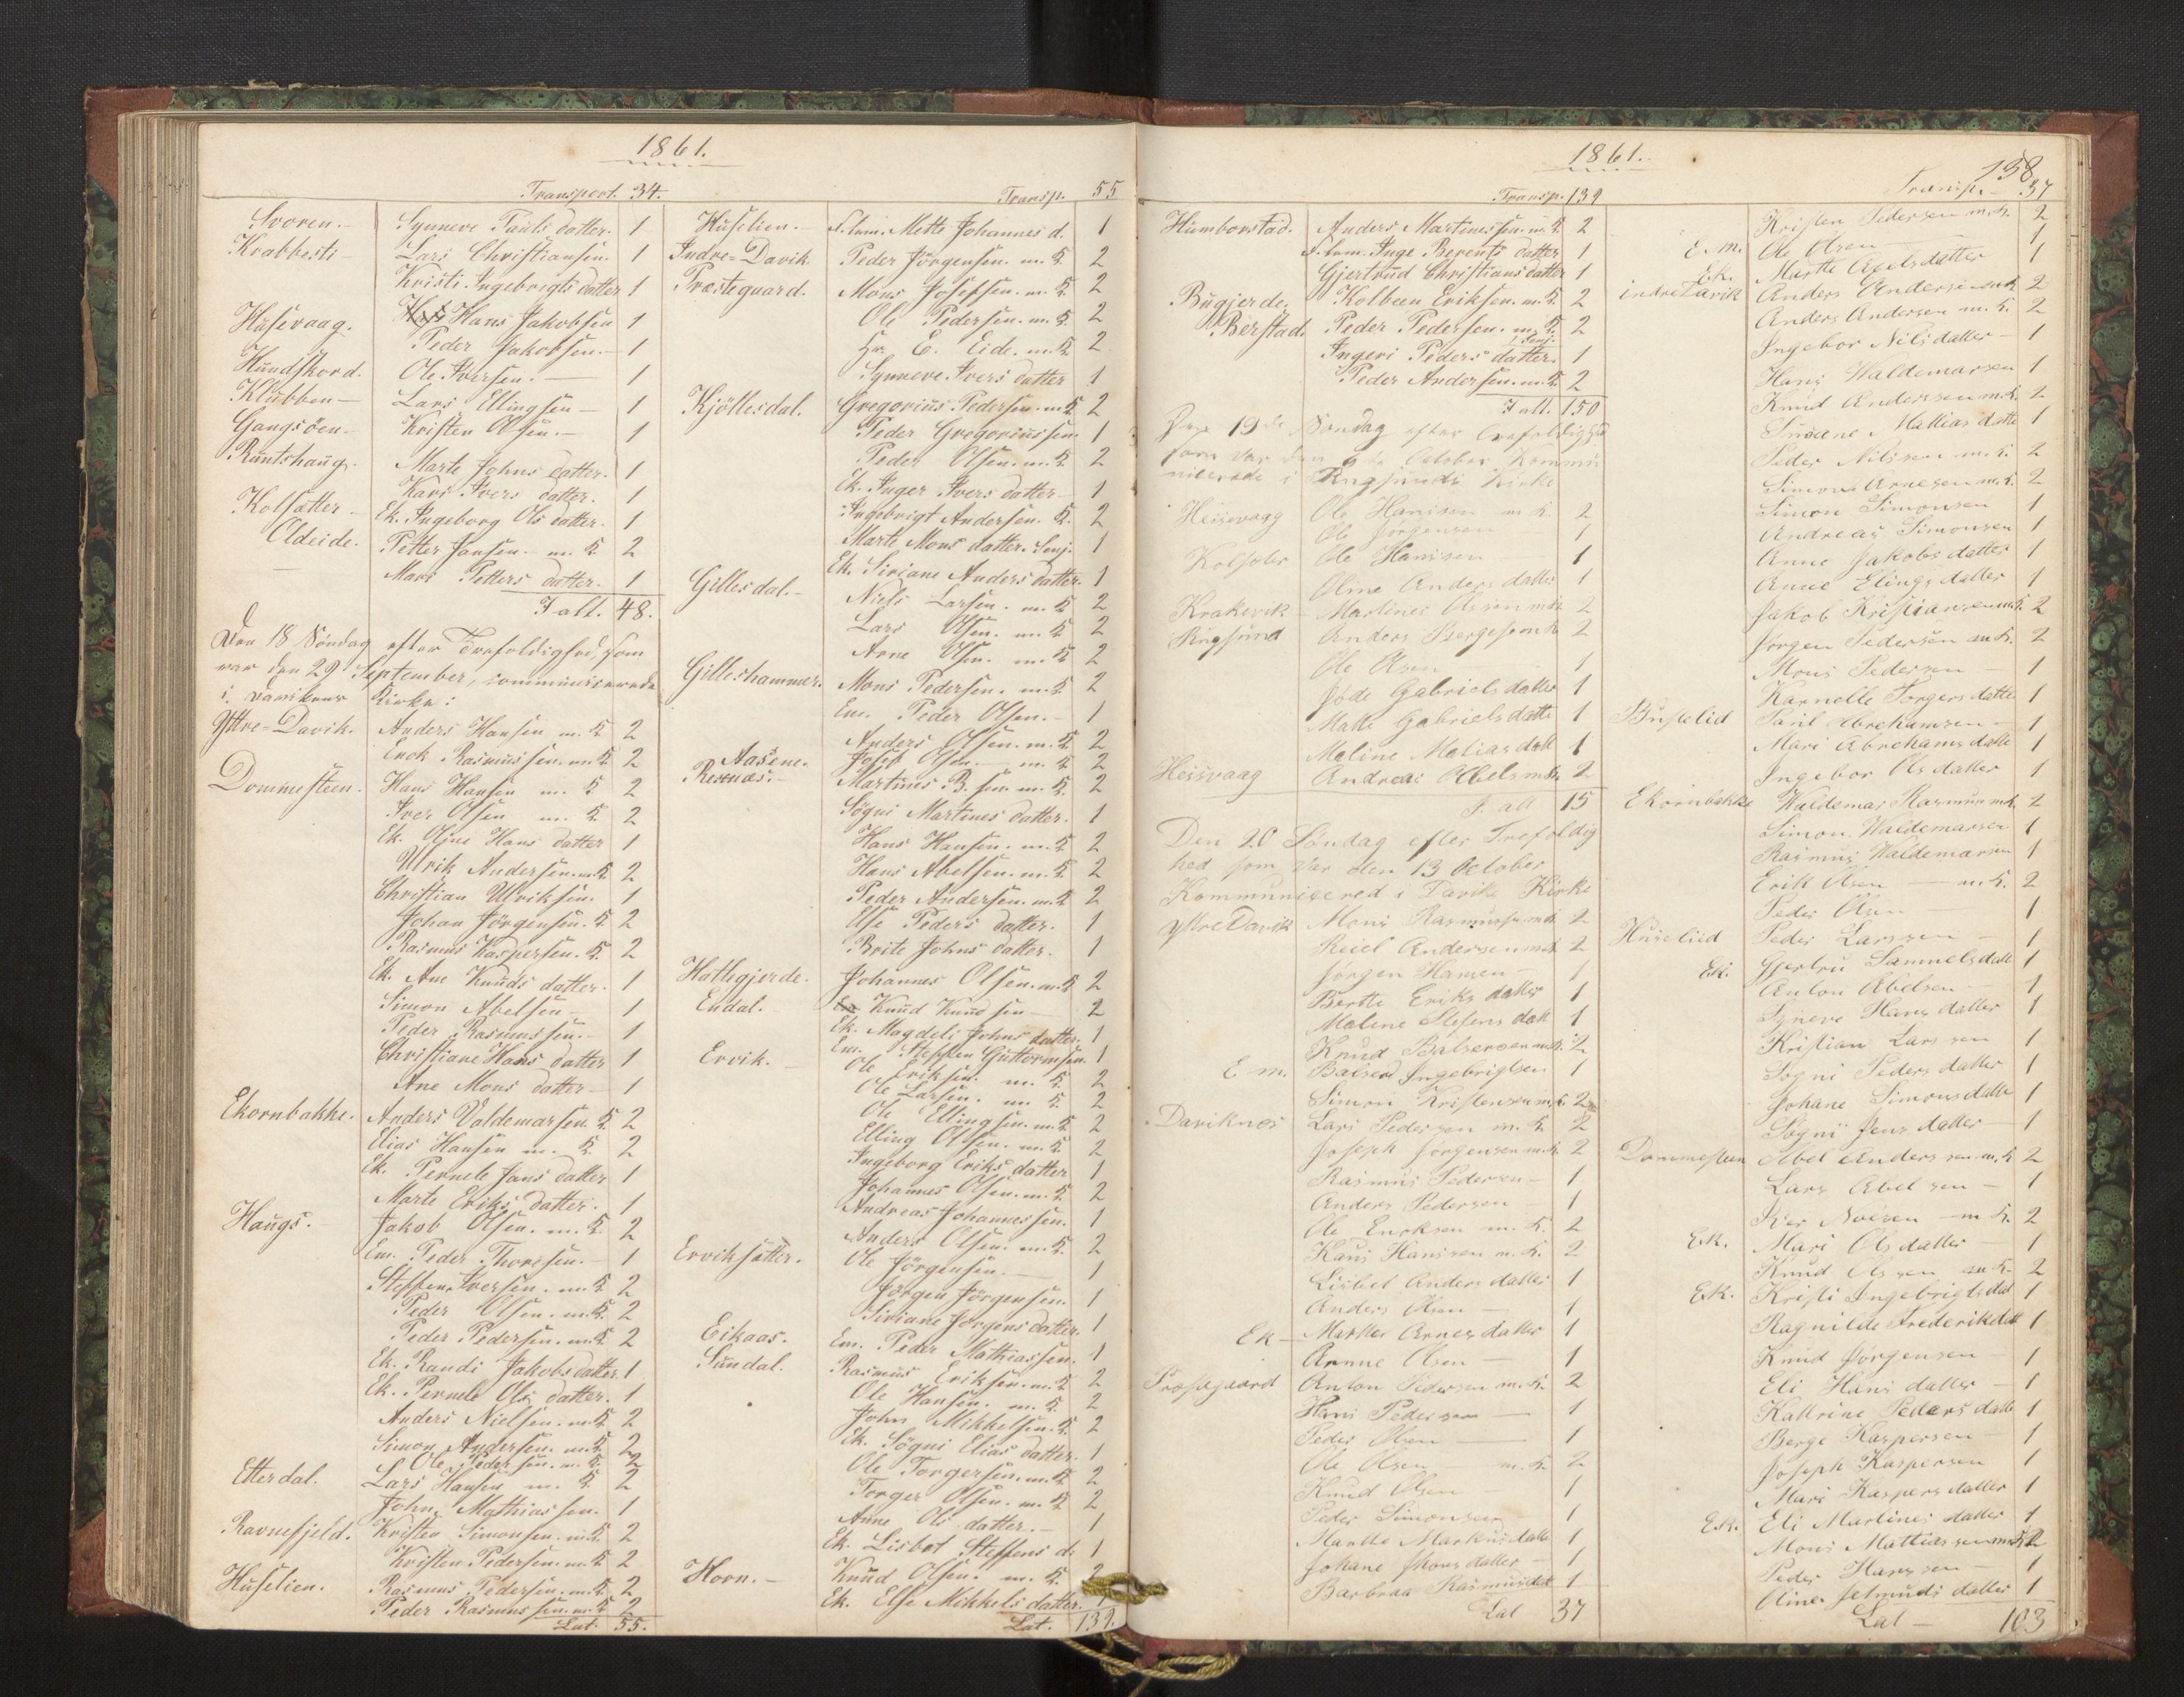 1861.
Transport. 34.
Svoren.- Synneve Pauls datter. 1
Krabbesti- Lars Christiansen. 1
Kristi Ingebrigts datter 1
Husevaag. Hans Jakobsen 1
Peder Jakobsen.- 1
Hundskord. Ole Iversen.- 1
Klubben- Lars Ellingsen- 1
Gangsöen- Kristen Olsen.- 1
Runtshaug. Marte Johns datter. 1
Kari Ivers datter. 1
Kolsætter. Ek. Ingeborg Ols datter. 1
Oldeide. Petter Jansen. m. K. 2
Mari Petters datter. 1
I alt. 48.
Den 18 Söndag efter Trefoldighed, som
var den 29 September, communiserede
i Davikens Kirke:
Yttre=Davik. Anders Hansen m. K 2
Enok Rasmussen. m. K 2
Dommesteen. Hans Hansen m. K 2
Iver Olsen m. K 2
Ek. Oline Hans datter 1
Ulrik Andersen. m. K. 2
Christian Ulriksen. 1
Johan Jörgensen. K 2
Rasmus Kaspersen. K. 2
Ek. Ane Knuds datter. 1
Simon Abelsen- 1
Peder Rasmussen.- 1
Christiane Hans datter 1
Ane Mons datter- 1
Ekornbakke. Anders Valdemarsen. K 2
Elias Hansen m. K. 2
Ek. Pernele Jans datter 1
Marte Eriks datter. 1
Haugs.- Jakob Olsen. m. K. 2
Em. Peder Thoresen.- 1
Steffen Iversen. m. K 2
Peder Olsen. m. K. 2
Peder Pedersen. m. K 2
Ek. Randi Jakobs datter. 1
Ek. Pernele Ols datter. 1
Anders Nielsen. m. K. 2
Simon Andersen. m. K. 2
Ole Pedersen. m. K. 2
Etterdal. Lars Hansen m. K 2
John Mathiassen. 1
Ravnefjeld. Kristen Simonsen. m. K. 2
Kristen Pedersen. m. K. 2
Huselien. Rasmus Pedersen. m. K. 2
Peder Rasmussen. m. K 2
Lat. 55.
Transp. 55
Huselien.- Mette Johannes d. 1
Indre=Davik. Peder Jörgensen. m. K 2
Præsteguard. Mons Josefsen. m. K. 2
Ole Pedersen. m. K. 2
Hr. E. Eide. m. K. 2
Synneve Ivers datter 1
Kjöllesdal. Gregorius Pedersen. m. K 2
Peder Gregoriussen. 1
Peder Olsen. m. K. 2
Ek. Inger Ivers datter- 1
Ingebrigt Andersen. K. 2
Marte Mons datter. Senj. 1
Ek. Siriane Anders datter. 1
Gillesdal.- Niels Larsen. m. K 2
Lars Olsen. m. K 2
Arne Olsen. m. K 2
Gilleshammer. Mons Pedersen. m. K 2
Em. Peder Olsen.- 1
Anders Olsen. m. K 2
Aasene. Josef Olsen.- m. K 2
Resenæs.- Martines B. sen. m. K 2
Søgni Martines datter. 1
Hans Hansen. m. K 2
Hans Abelsen. m. K 2
Peder Andersen. m. K 2
Else Peders datter. 1
Brite Johns datter. 1
Hathgjerde. Johannes Olsen. m. K 2
Endal. Knud Knudsen- 2
Ek. Magdeli Johns datter. 1
Em. Steffen Guttormsen. 1
Ervik.- Ole Eriksen. m. K. 2
Ole Larsen. m. K 2
Ole Ellingsen. m. K 2
Elling Olsen. m. K 2
Ingeborg Eriks datter 1
Johannes Olsen. m. K 2
Andreas Johannessen. 1
Anders Olsen. m. K. 2
Erviksætter. Ole Jörgensen.- 1
Jörgen Jörgensen. 1
Siriane Jörgens datter. 1
Eikaas. Em. Peder Mathiassen. 1
Sundal. Rasmus Eriksen. m. K 2
Ole Hansen. m. K. 2
John Mikkelsen. K 2
Ek. Sögni Elias datter. 1
Ole Torgersen. m. K 2
Torger Olsen. m. K 2
Anne Ols datter.- 1
Ek. Lisbet Steffens d. 1
Horn.- Knud Olsen. m. K. 2
Ek. Else Mikkels datter. 1
Lat. 139.
1861.
138
Transp. 139
Humborstad. Anders Martinessen. m. K 2
Inge Berents datter 1
Gjertrud Christians datter 1
Bugjerde. Kolbeen Eriksen. m. K 2
Berstad. Peder Pedersen. m. K. 2
Senj.
Ingeri Peders datter. 1
Peder Andersen. m. K. 2
I alt. 150
Den 19de Søndag efter Trefoldighed
som var den 6te October Kommu
niserede i Rugsunds Kirke
Heisevaag Ole Hansen m K. 2
Ole Jørgensen 1
Kolsæter Ole Hansen 1
Oline Anders datter 1
Krakevik Martines Olsen m K 2
Rugsund Anders Bergesen m K 2
Ole Olsen 1
Gabriels datter 1
Malli Gabriels datte 1
Maline Matias datt 1
Heisvaag Andreas Abels m K. 2
I. alt 15
Den 20 Søndag efter Trefoldig
hed som var den 13 October
Kommunisered i Davik Kirke
Ytre Davik Mons Rasmussen m K 2
Andersen m K 2
Jørgen Hansen- 1
Berthe Eriks datter 1
Malene Stefens datt 1
Knud Balsersen m K. 2
E m. Balser Ingebrigtsen 1
Simon Kristensen m K. 2
Daviknes Lars Pedersen m. K 2
Joseph Jørgensen m K 2
Rasmus Pedersen- 1
Anders Pedersen 1
Ole Enoksen m. K. 2
Hans Hansen m. K. 2
Lisbet Anders datter 1
Anders Olsen- 1
Ek- Marthe Arnes datter 1
Anne Olsen- 1
Præstegaard Anton Pedersen m. K. 2
Hans Pedersen- 1
Peder Olsen- 1
Ole Olsen- m. K 2
Knud Olsen- 1
Peder Simonsen 1
Marthe Markus datte 1
Johane Jhons datter- 1
Barbraa Rasmusdatt 1
Lat 37
Transp.- 37
Kristen Pedersen m. K. 2
E. m. Ole Olsen- 1
Ek. Marthe Axels datter 1
indre Davik Anders Andersen m K 2
Anders Andersen m. K. 2
Ingebor Nils datter- 1
Hans Waldemarsen 1
Knud Anderssen m. K. 2
Susane Mattias datte 1
Peder Nilssen m. K. 2
Simon Arnesen m. K. 2
Simon Simonsen 1
Andreas Simonsen 1
Anne Jakobs datter 1
Anne Elings datter 1
Jakob Kristiansen m K. 2
Jørgen Pedersen m K. 2
Mons Pedersen- 1
Karnelle Torgers datte 1
Buskelid Paul Abrehamsen- 1
Mari Abrehams datte 1
Ingebor Ols datter 1
Ekornbakke Waldemar Rasmus m K. 2
Simon Waldemarsen 1
Rasmus Waldemarsen 1
Erik Olsen- m. K. 2
Peder Olsen 1
Huselied Peder Larssen- 1
Ek. Gjertru Sammels datt 1
Anton Abelsen- 1
Synneve Hans datter 1
Kristian Larssen 1
Søgni Peders datter 1
Johane Simons datte 1
Søgni Jens datter- 1
Dommesteen Abel Anderssen m. K 2
Lars Abelsen- 1
Iver m K. 2
Ek. Mari Ols datter- 1
Knud Olssen m K- 2
Ek. Kristi Ingebrigts datt 1
Ragnilde Frederik datt 1
Knud Jørgensen- 1
Eli Hans datter- 1
Kattrine Peders datte 1
Berge Kaspersen- 1
Joseph Kaspersen 1
Mari Kaspers datter 1
Ek. Eli Martines datter 1
Mons Mattiassen m K 2
Peder Hanssen- 1
Oline datter 1
Lat- 103